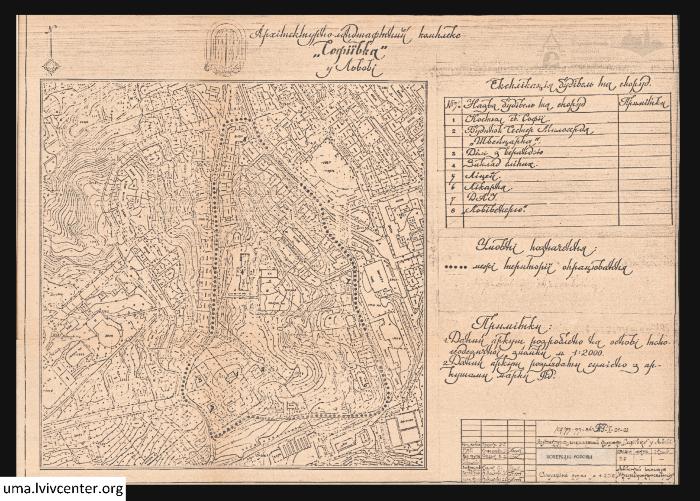 Архітектурно-ландшафтний комплекс
"Софіївка"
у Львові
Експлікація будівель та споруд.
№ Назва будівель та споруд Примітка
1 Костьол св. Софії
2 Будинок Сестер Милосердя
"Швейцарка"
3 Дім з верандою
4 Заклад сліпих
5 Ліцей
6 Лікарня
7 ДАІ
8 Львівенерго
Умовні позначення:
межі території опрацювання
Примітки:
1. Даний аркуш розроблено на основі топо-
геодезичної зйомки М 1:2000.
2. Даний аркуш розглядати сумісно з ар-
кушами марки
uma.lvivcenter.org